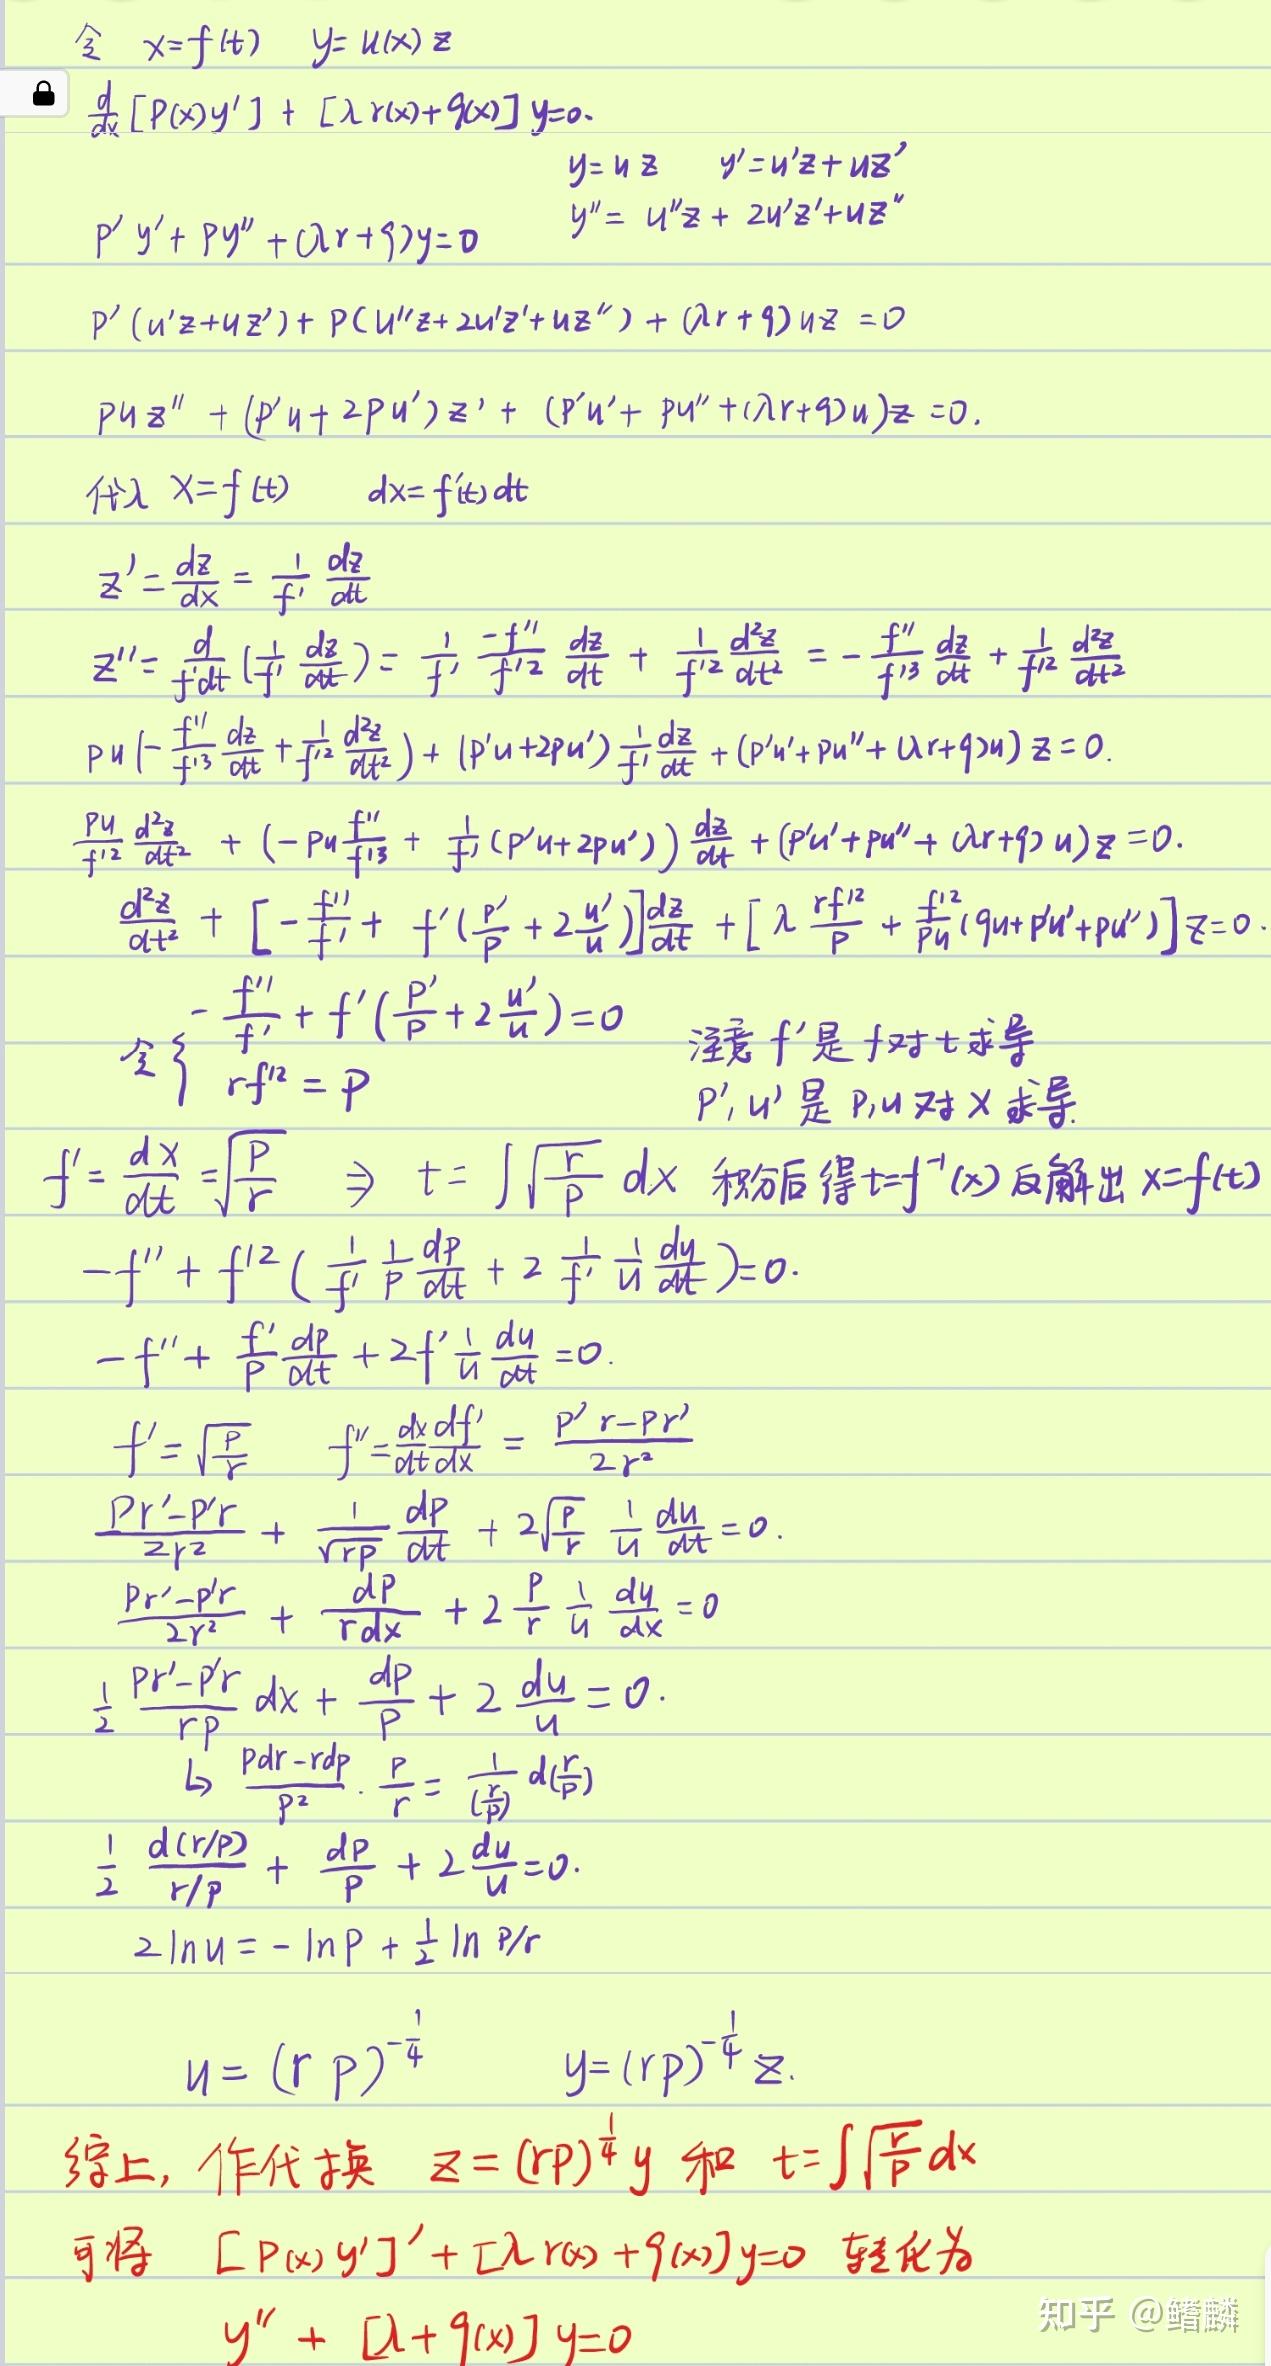 令 x=f(t) y=u(x)z
d/dx [P(x)y'] + [λr(x)+q(x)]y=0.
y=uz y'=u'z+uz'
y''= u''z + 2u'z'+uz''
P'y'+py''+(λr+q)y=0
P'(u'z+uz')+P(u''z+2u'z'+uz'')+(λr+q)uz=0
puz''+(p'u+2pu')z'+(p'u'+pu''+(λr+q)u)z=0.
代入 x=f(t) dx=f'(t)dt
z'=dz/dx=1/f' dz/dt
z''=d/f'dt(1/f' dz/dt)=1/f' -f''/f'² dz/dt + 1/f'² d²z/dt² = -f''/f'³ dz/dt + 1/f'² d²z/dt²
pu(-f''/f'³ dz/dt+1/f'² d²z/dt²)+(p'u+2pu')1/f' dz/dt+(p'u'+pu''+(λr+q)u)z=0.
pu/f'² d²z/dt² + (-pu f''/f'³ + 1/f'(p'u+2pu'))dz/dt+(p'u'+pu''+(λr+q)u)z=0.
d²z/dt² + [-f''/f' + f'(p'/p+2u'/u)]dz/dt+[λ rf'²/p + f'²/pu(qu+p'u'+pu'')]z=0.
令{ -f''/f' + f'(p'/p+2u'/u)=0
rf'²=p
注意 f'是f对t求导
p',u'是p,u对x求导.
f'=dx/dt=√(p/r) ⇒ t=∫√(r/p) dx 积分后得t=f⁻¹(x)反解出x=f(t)
-f''+f'²(1/f' 1/p dp/dt+2 1/f' 1/u du/dt)=0.
-f''+f'/p dp/dt+2f' 1/u du/dt=0.
f'=√(p/r) f''=dx/dt df'/dx = (p'r-pr')/2r²
(pr'-p'r)/2r² + 1/√(rp) dp/dt + 2√(p/r) 1/u du/dt=0.
(pr'-p'r)/2r² + dp/rdx + 2 p/r 1/u du/dx=0
1/2 (pr'-p'r)/rp dx + dp/p + 2 du/u=0.
↳ (pdr-rdp)/p² · p/r = 1/(r/p) d(r/p)
1/2 d(r/p)/(r/p) + dp/p + 2du/u=0.
2lnu=-lnp+1/2 ln p/r
u=(rp)^(-1/4) y=(rp)^(-1/4) z.
综上,作代换 z=(rp)^(1/4) y 和 t=∫√(r/p)dx
可将 [P(x)y']'+[λr(x)+q(x)]y=0 转化为
y''+[λ+q(x)]y=0
知乎 @鳍麟